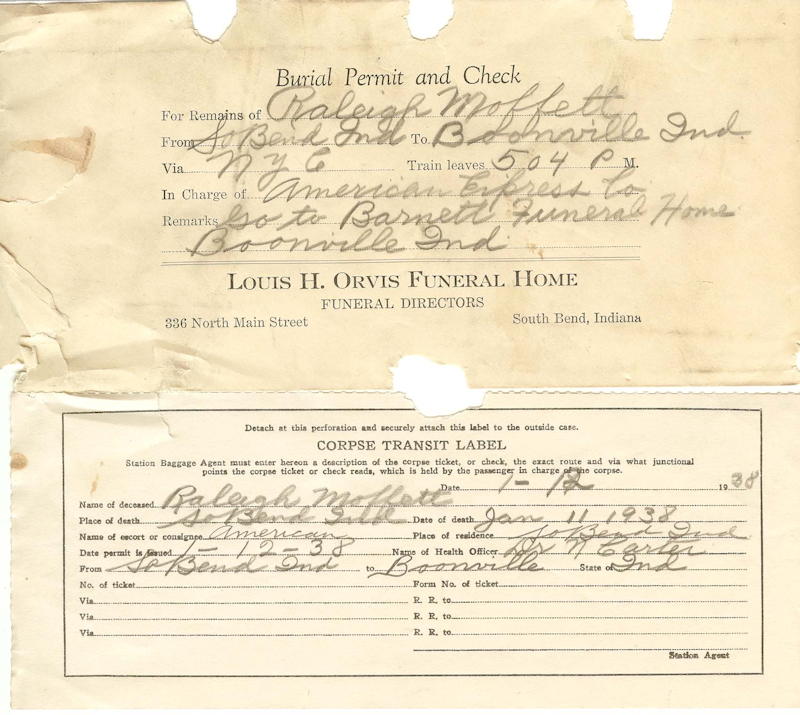 Burial Permit and Check
For Remains of Raleigh Moffett
From So Bend Ind To Boonville Ind.
Via N Y C Train leaves 504 P M.
In Charge of American Express Co
Remarks Go to Barnett Funeral Home
Boonville Ind
LOUIS H. ORVIS FUNERAL HOME
FUNERAL DIRECTORS
336 North Main Street South Bend, Indiana
Detach at this perforation and securely attach this label to the outside case.
CORPSE TRANSIT LABEL
Station Baggage Agent must enter hereon a description of the corpse ticket, or check, the exact route and via what junctional
points the corpse ticket or check reads, which is held by the passenger in charge of the corpse.
Date 1-12 1938
Name of deceased Raleigh Moffett
Place of death So Bend Date of death Jan 11 1938
Name of escort or consignee American Place of residence So Bend Ind
Date permit is issued 1-12-38 Name of Health Officer Dr Carter
From So Bend Ind to Boonville State of Ind
No. of ticket Form No. of ticket
Via R. R. to
Via R. R. to
Via R. R. to
Station Agent